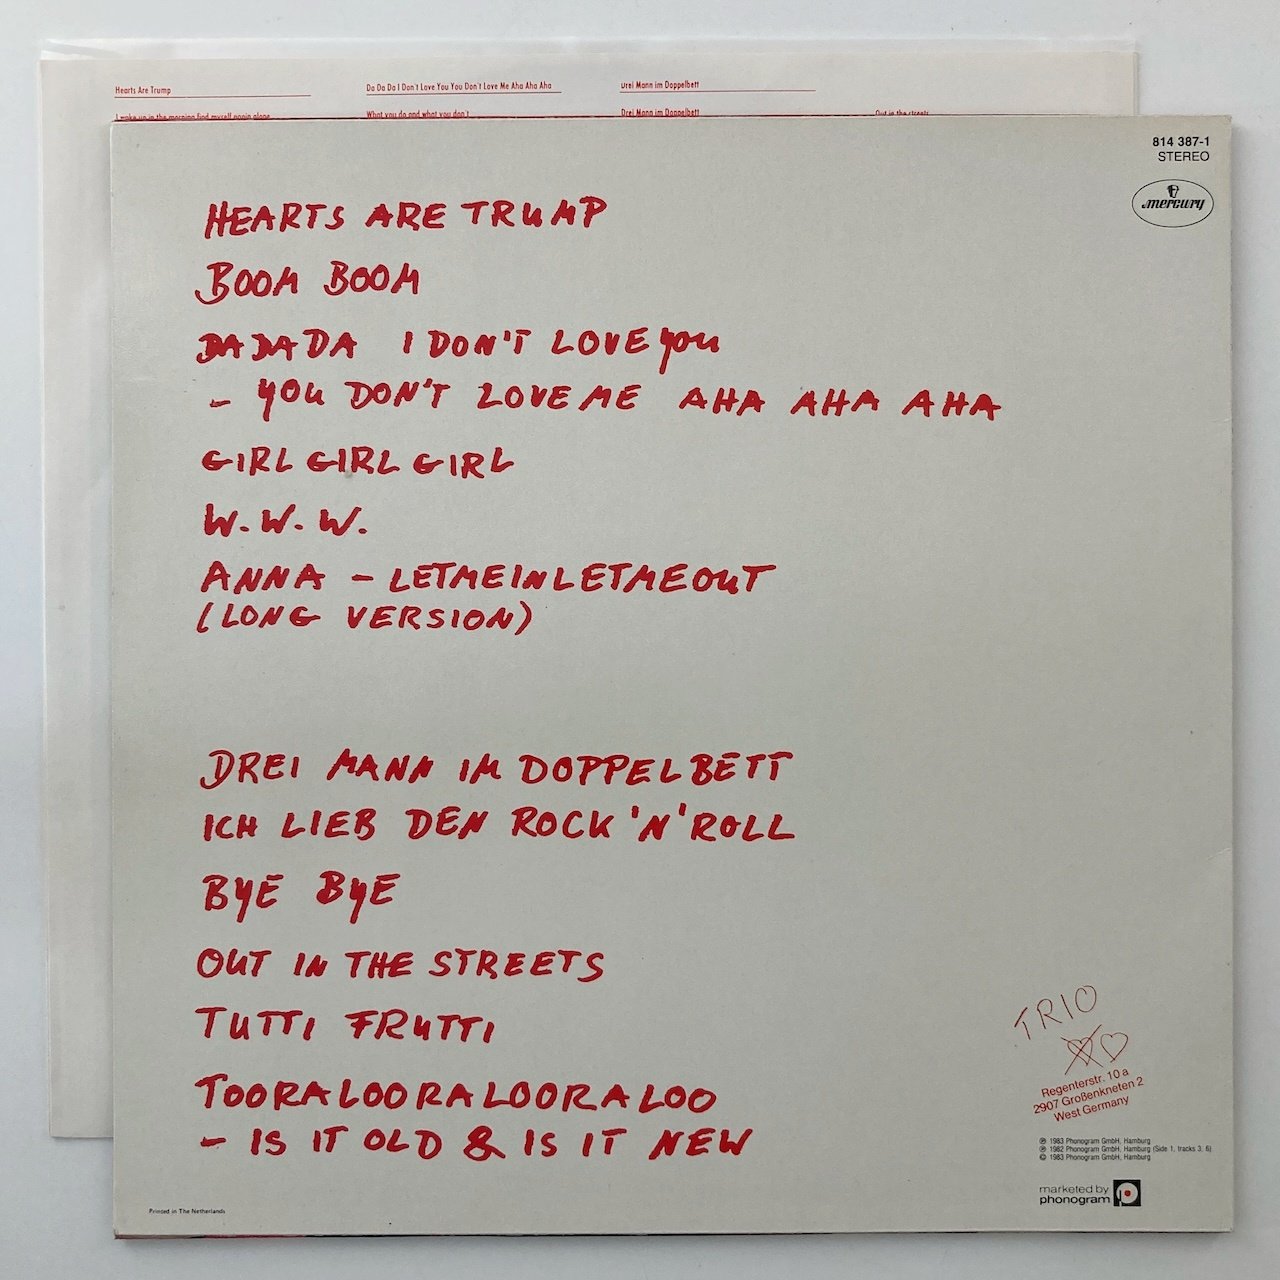 Hearts Are Trump
Da Da Da I Don't Love You You Don't Love Me Aha Aha Aha
Drei Mann im Doppelbett
I wake up in the morning find myself again alone
What you do and what you don't
Drei Mann im Doppelbett
Out in the streets
814 387-1
STEREO
mercury
HEARTS ARE TRUMP
BOOM BOOM
DA DA DA I DON'T LOVE YOU
- YOU DON'T LOVE ME AHA AHA AHA
GIRL GIRL GIRL
W.W.W.
ANNA - LETMEINLETMEOUT
(LONG VERSION)
DREI MANN IM DOPPELBETT
ICH LIEB DEN ROCK 'N' ROLL
BYE BYE
OUT IN THE STREETS
TUTTI FRUTTI
TOORALOORALOORALOO
- IS IT OLD & IS IT NEW
TRIO
Regenterstr. 10 a
2907 Großenkneten 2
West Germany
℗ 1983 Phonogram GmbH, Hamburg
℗ 1982 Phonogram GmbH, Hamburg (Side 1, tracks 3, 6)
© 1983 Phonogram GmbH, Hamburg
marketed by
phonogram
Printed in The Netherlands